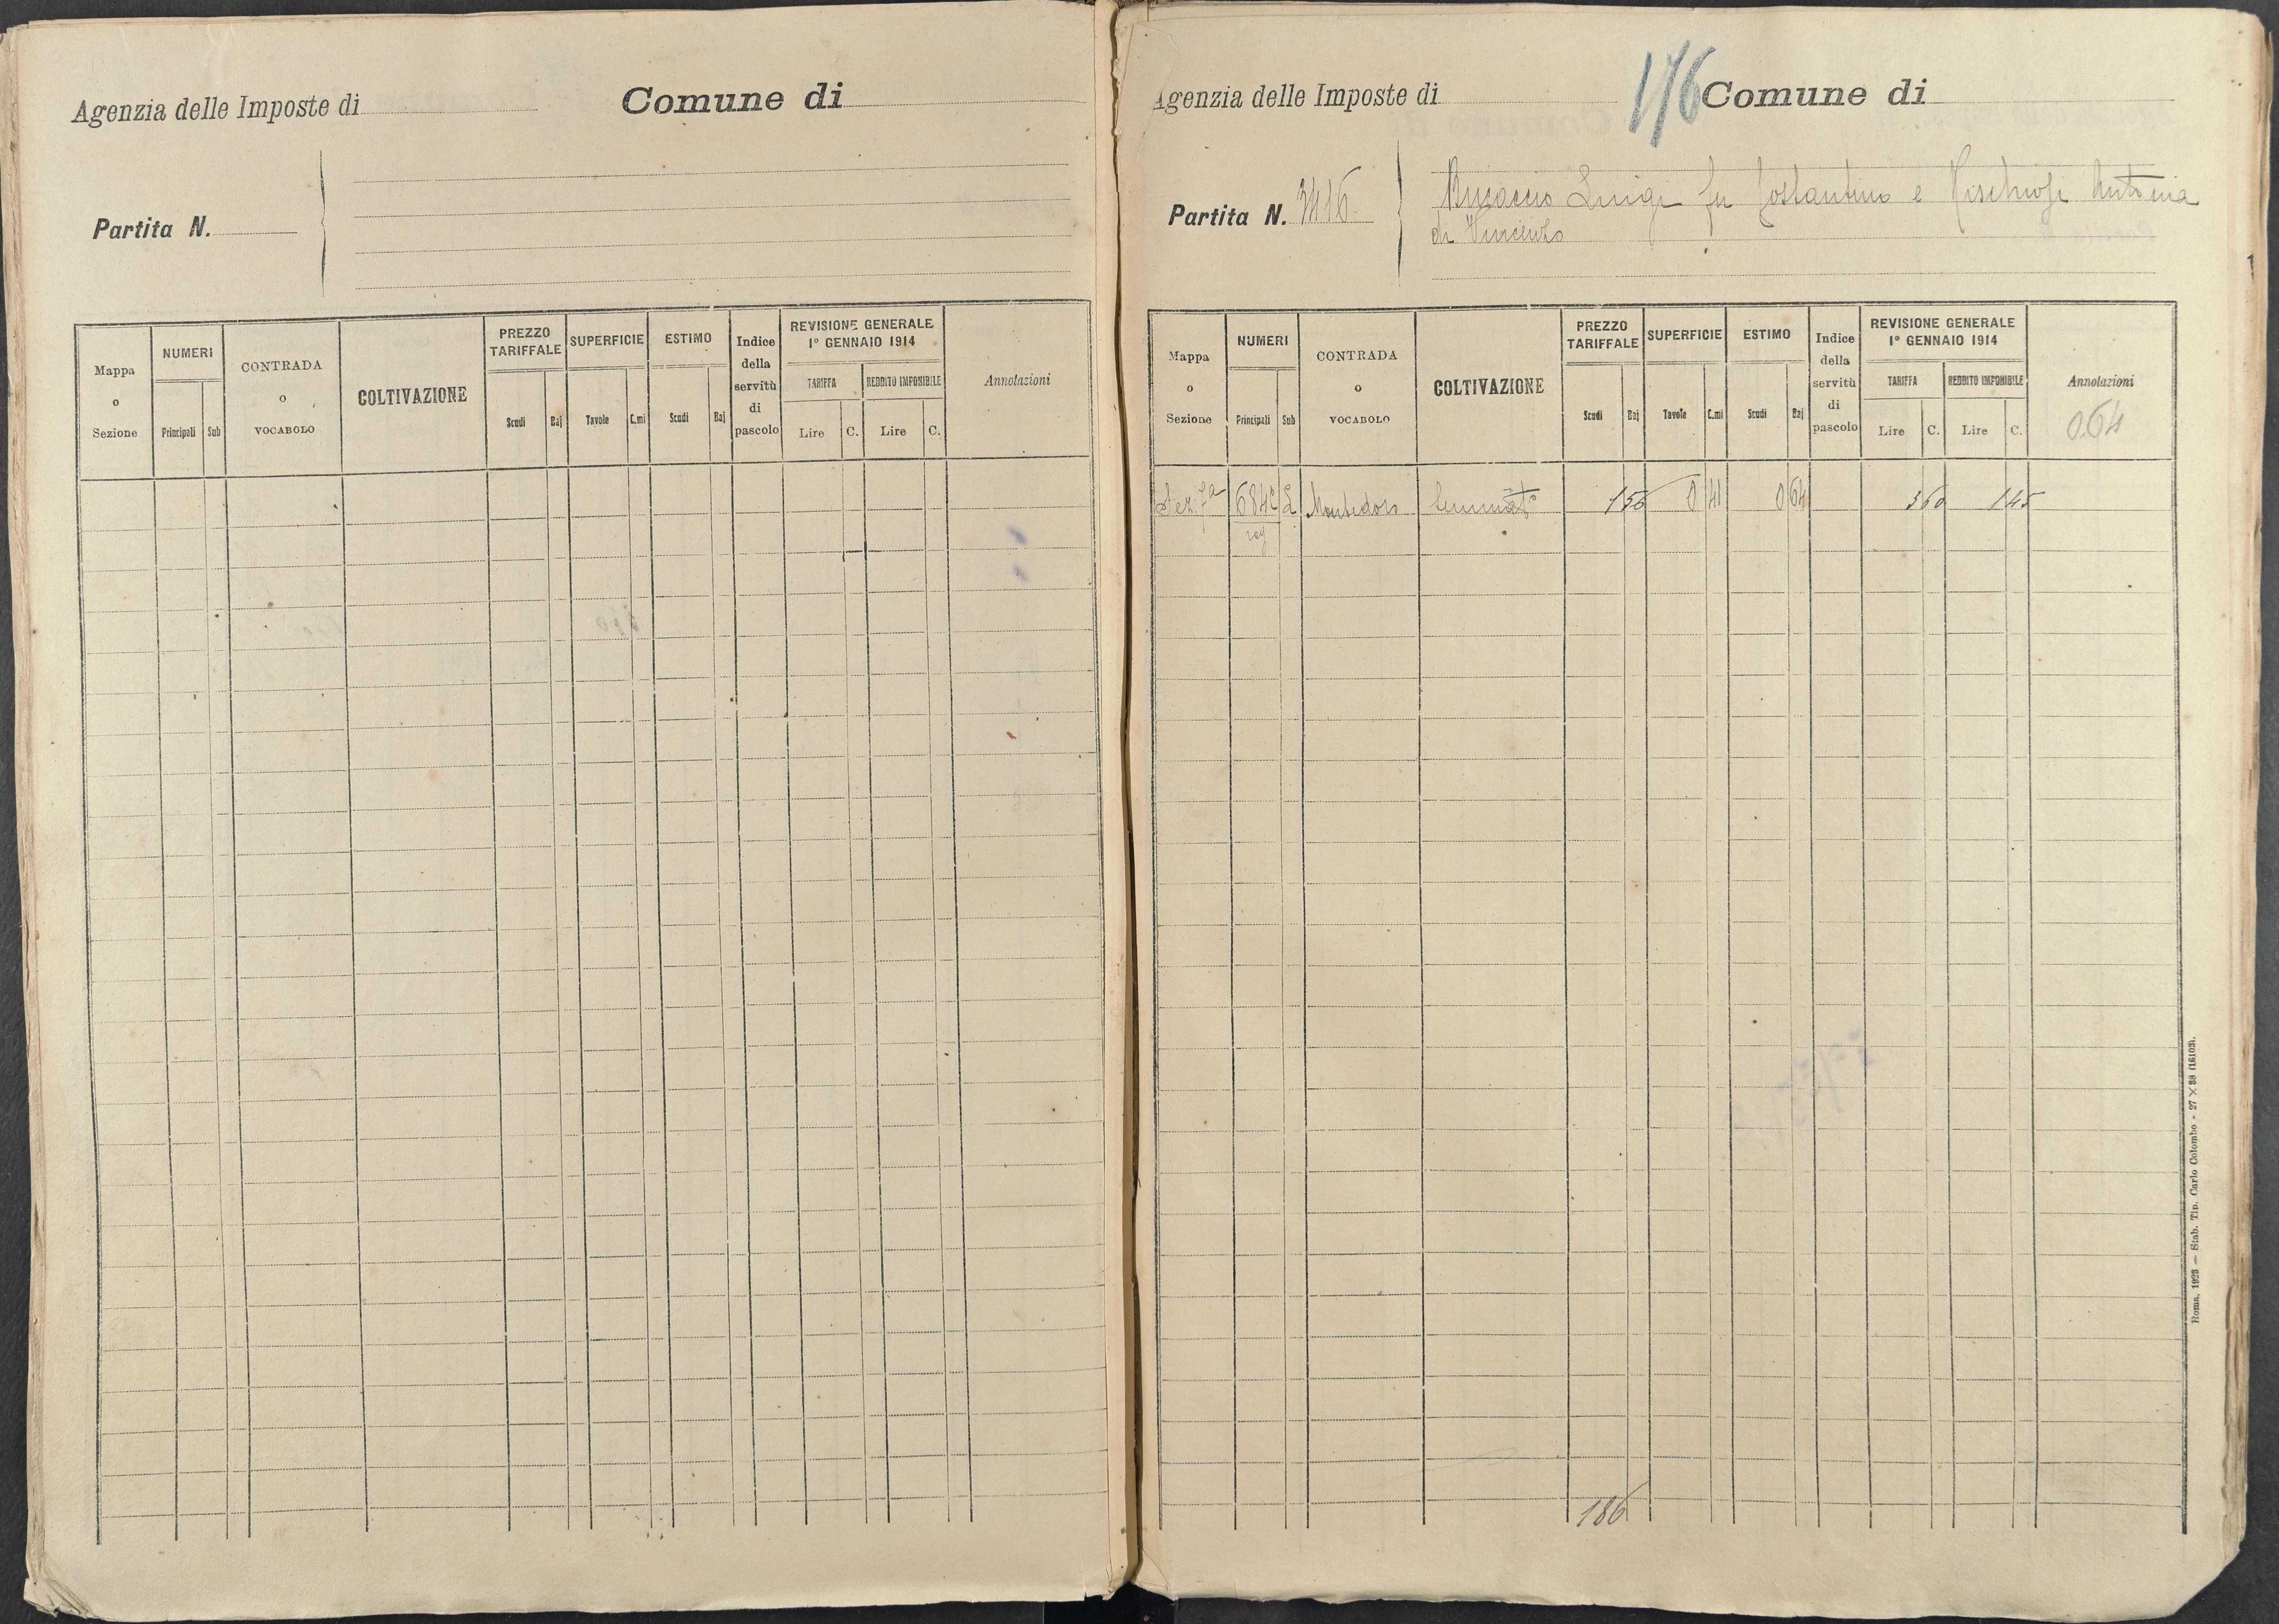 Agenzia delle Imposte di
Comune di
Partita N.
Mappa o Sezione
NUMERI
Principali Sub
CONTRADA o VOCABOLO
COLTIVAZIONE
PREZZO TARIFFALE
Scudi Baj
SUPERFICIE
Tavole C.mi
ESTIMO
Scudi Baj
Indice della servitù di pascolo
REVISIONE GENERALE
1° GENNAIO 1914
TARIFFA REDDITO IMPONIBILE
Lire C. Lire C.
Annotazioni
Agenzia delle Imposte di
176
Comune di
Partita N. 3416
Luigi fu Costantino e Antonia
di Vincenzo
Mappa o Sezione
NUMERI
Principali Sub
CONTRADA o VOCABOLO
COLTIVAZIONE
PREZZO TARIFFALE
Scudi Baj
SUPERFICIE
Tavole C.mi
ESTIMO
Scudi Baj
Indice della servitù di pascolo
REVISIONE GENERALE
1° GENNAIO 1914
TARIFFA REDDITO IMPONIBILE
Lire C. Lire C.
Annotazioni
0.64
Sez. 684 2 Montedoro 156 0 41 0 64 360 145
186
Roma, 1923 — Stab. Tip. Carlo Colombo - 27 × 38 (16103).